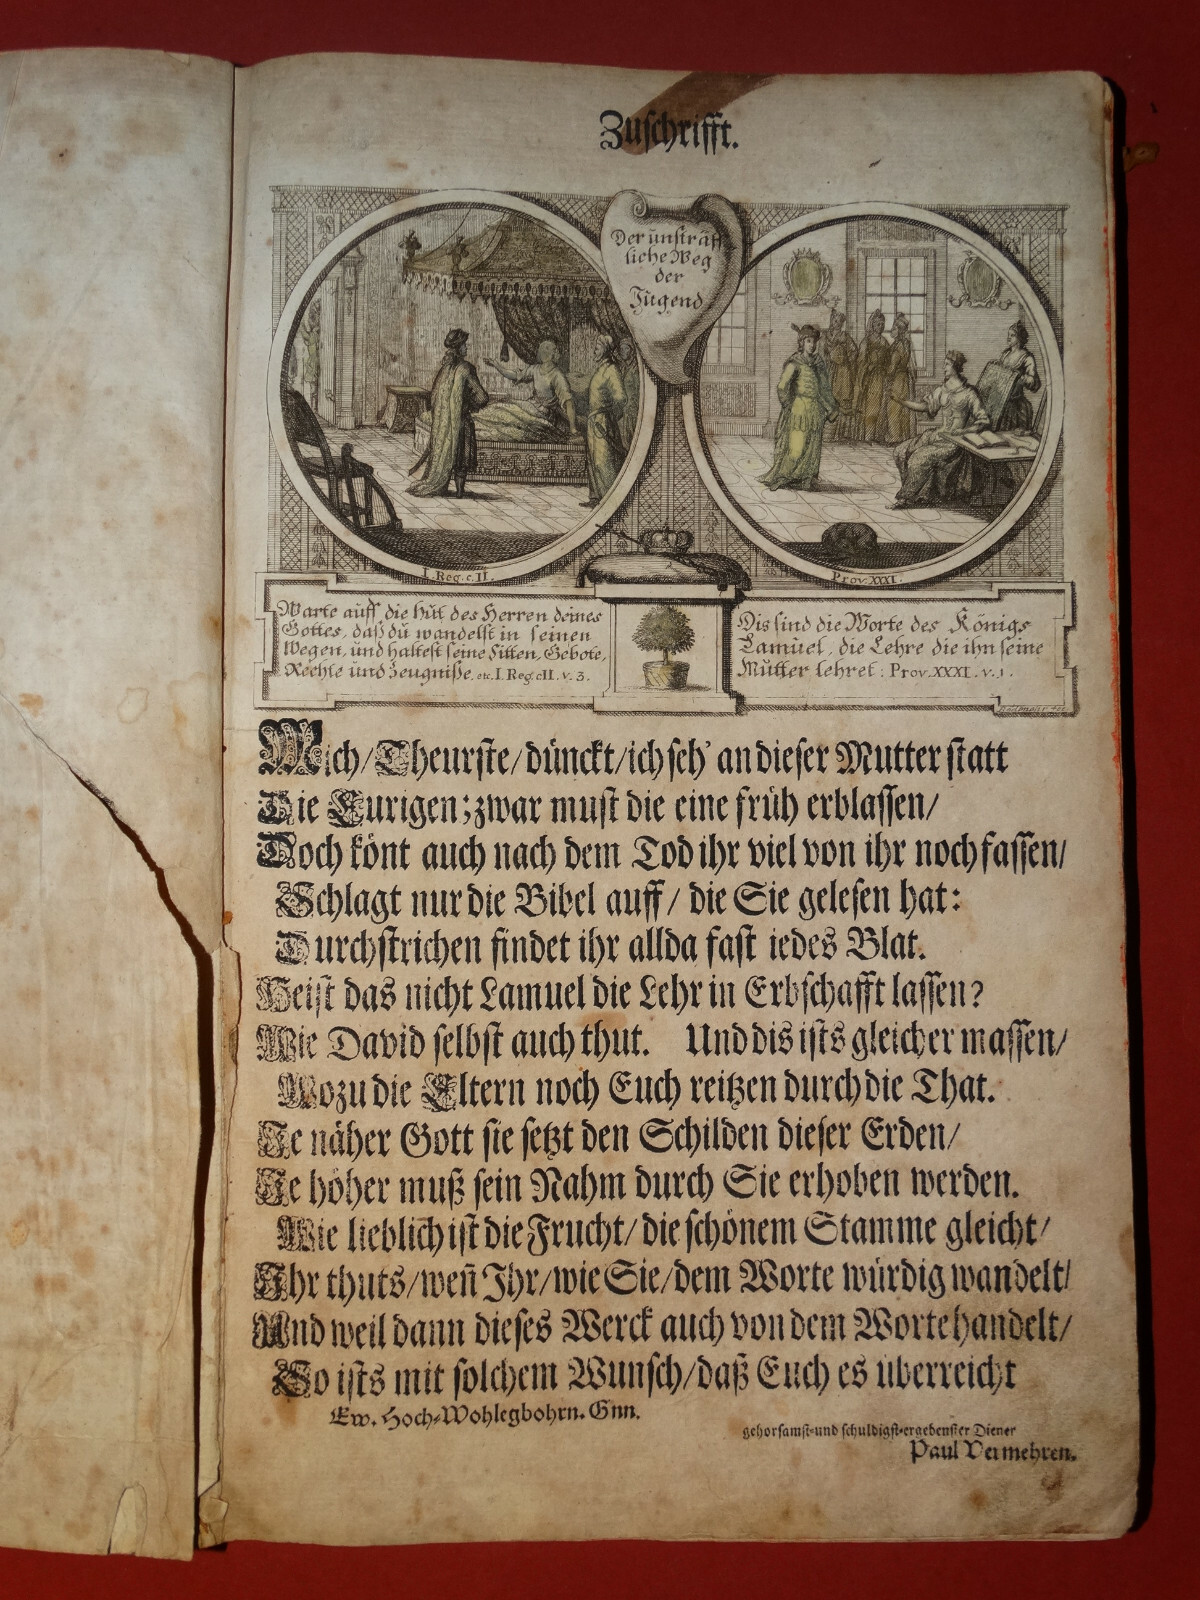 Zuſchrifft.
Der ünſträff
liche Weg
der
Jügend
I. Reg. c. II.
Prov. XXXI.
Warte auff die Hut des Herren deines
Gottes, daß dü wandelſt in ſeinen
Wegen, und halteſt ſeine Sitten, Gebote,
Rechte und Zeugniße. etc. I. Reg. cII. v. 3.
Dis ſind die Worte des Königs
Lamüel, die Lehre die ihn ſeine
Mütter lehret: Prov. XXXI. v. 1.
Mich/Theurſte/dünckt/ich ſeh' an dieſer Mutter ſtatt
Die Eurigen; zwar muſt die eine früh erblaſſen/
Doch könt auch nach dem Tod ihr viel von ihr noch faſſen/
Schlagt nur die Bibel auff/ die Sie geleſen hat:
Durchſtrichen findet ihr allda faſt iedes Blat.
Heiſt das nicht Lamuel die Lehr in Erbſchafft laſſen?
Wie David ſelbſt auch thut. Und dis iſts gleicher maſſen/
Wozu die Eltern noch Euch reitzen durch die That.
Je näher Gott ſie ſetzt den Schilden dieſer Erden/
Je höher muß ſein Nahm durch Sie erhoben werden.
Wie lieblich iſt die Frucht/ die ſchönem Stamme gleicht/
Ihr thuts/wen̄ Ihr/wie Sie/dem Worte würdig wandelt/
Und weil dann dieſes Werck auch von dem Worte handelt/
So iſts mit ſolchem Wunſch/daß Euch es überreicht
Ew. Hoch-Wohlegbohrn. Gnn.
gehorſamſt-und ſchuldigſt-ergebenſter Diener
Paul Vermehren.